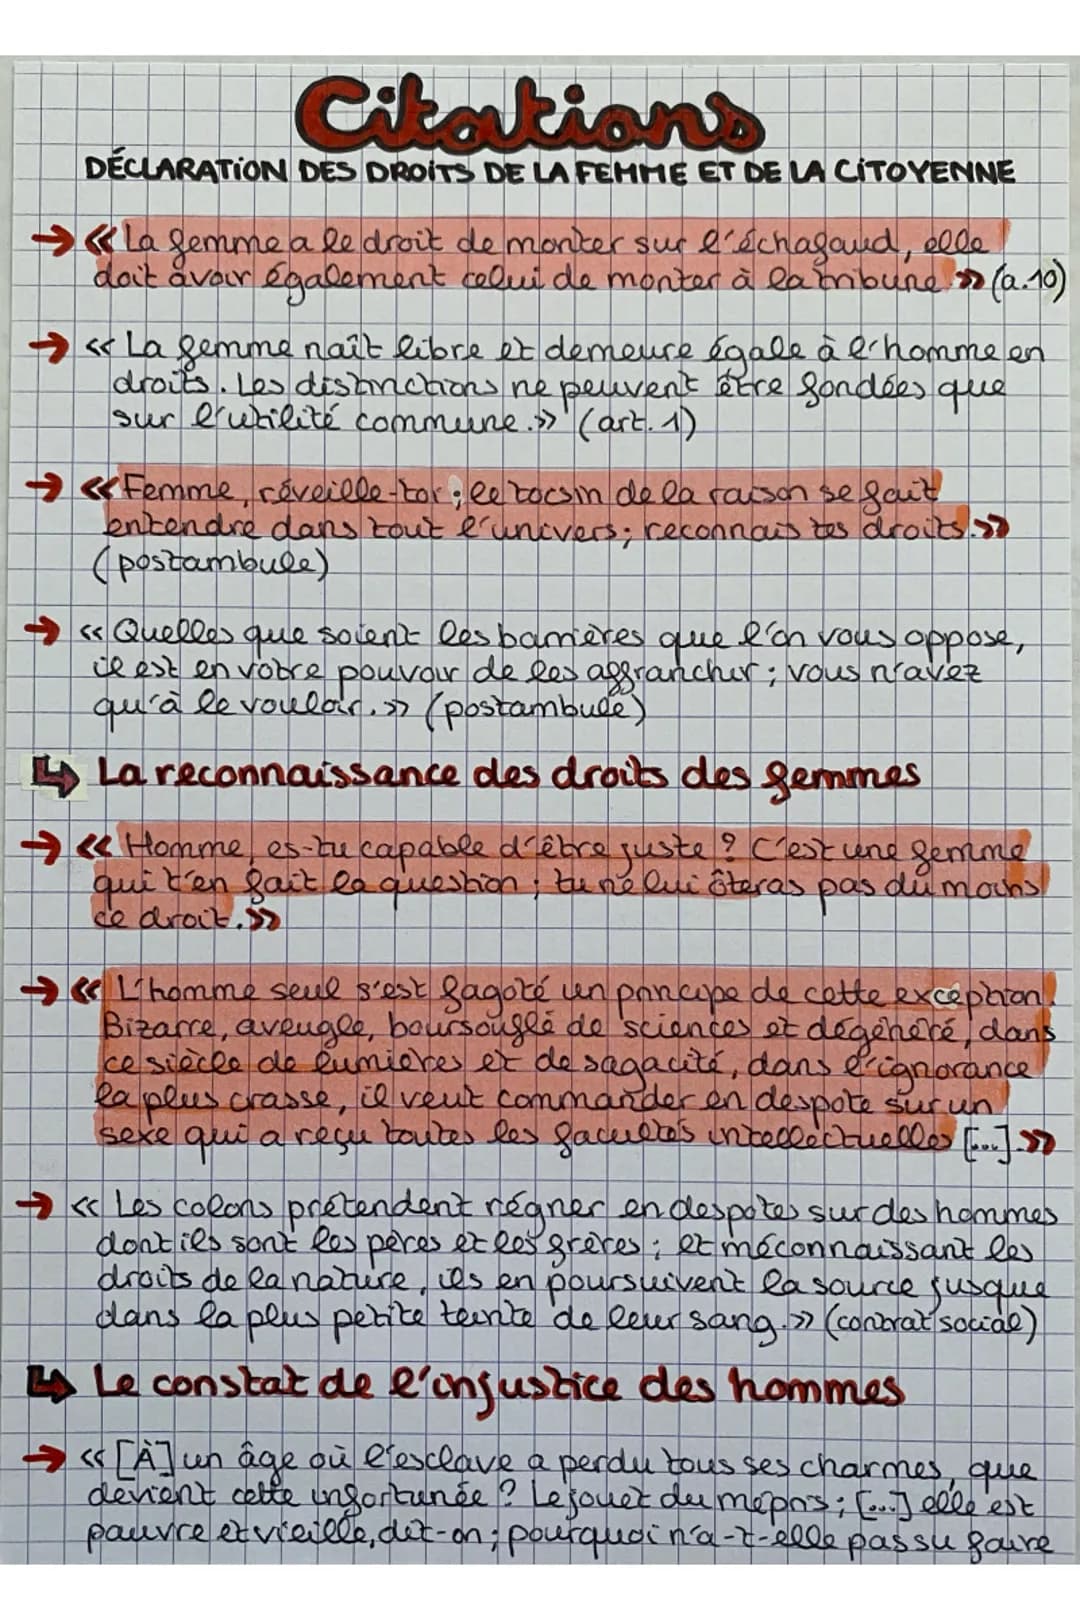 Citations
DÉCLARATION DES DROITS DE LA FEMME ET DE LA CITOYENNE
→ « La femme a le droit de monter sur l'échafaud, elle
doit avoir également celui de monter à la tribune » (a.10)
→ « La femme naît libre et demeure égale à l'homme en
droits. Les distinctions ne peuvent être fondées que
sur l'utilité commune.» (art. 1)
→ « Femme, réveille-toi ; le tocsin de la raison se fait
entendre dans tout l'univers ; reconnais tes droits.»
(postambule)
→ « Quelles que soient les barrières que l'on vous oppose,
il est en votre pouvoir de les affranchir ; vous n'avez
qu'à le vouloir.» (postambule)
↳ La reconnaissance des droits des femmes
→ « Homme, es-tu capable d'être juste ? C'est une femme
qui t'en fait la question ; tu ne lui ôteras pas du moins
ce droit.»
→ « L'homme seul s'est fagoté un principe de cette exception.
Bizarre, aveugle, boursouflé de sciences et dégénéré, dans
ce siècle de lumières et de sagacité, dans l'ignorance
la plus crasse, il veut commander en despote sur un
sexe qui a reçu toutes les facultés intellectuelles [...].»
→ « Les colons prétendent régner en despotes sur des hommes
dont ils sont les pères et les frères ; et méconnaissant les
droits de la nature, ils en poursuivent la source jusque
dans la plus petite teinte de leur sang.» (contrat social)
↳ Le constat de l'injustice des hommes
→ « [À] un âge où l'esclave a perdu tous ses charmes, que
devient cette infortunée ? Le jouet du mépris ; [...] elle est
pauvre et vieille, dit-on ; pourquoi n'a-t-elle pas su faire